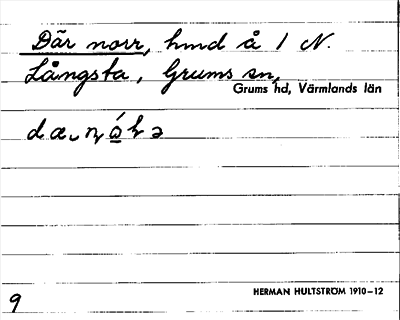 Där norr, hmd å 1 N.
Långsta, Grums sn,
Grums hd, Värmlands län
HERMAN HULTSTRÖM 1910–12
9